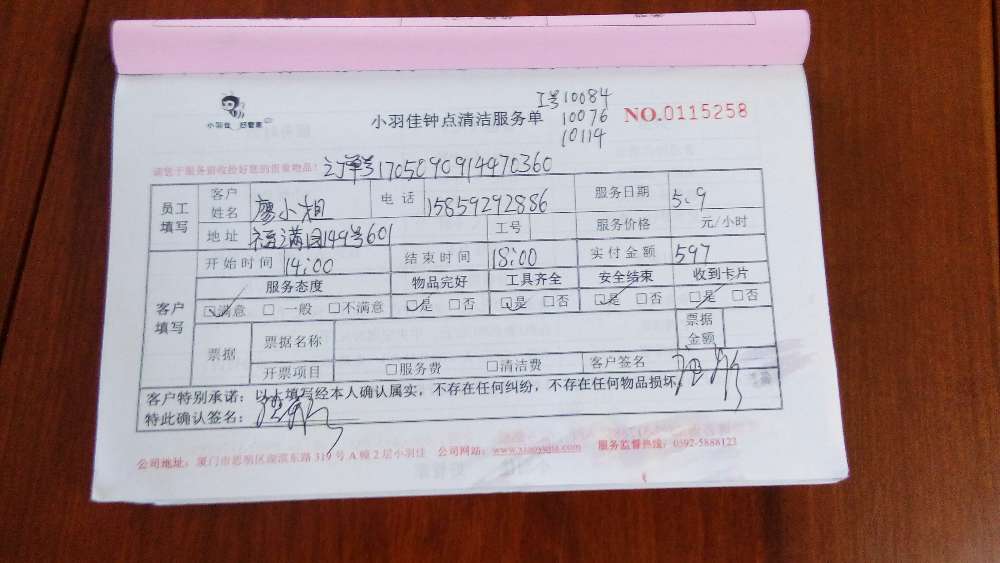 小羽佳 好管家
小羽佳钟点清洁服务单
工号10084
10076
10114
NO.0115258
请您于服务前收拾好您的贵重物品!
订单号1705090914470360
员工填写 客户姓名 廖小相 电话 15859292886 服务日期 5.9
地址 福满园149号601 工号 服务价格 元/小时
客户填写 开始时间 14:00 结束时间 18:00 实付金额 597
服务态度 物品完好 工具齐全 安全结束 收到卡片
☑满意 □一般 □不满意 ☑是 □否 ☑是 □否 ☑是 □否 ☑是 □否
票据 票据名称 票据金额
开票项目 □服务费 □清洁费 客户签名
客户特别承诺:以上填写经本人确认属实,不存在任何纠纷,不存在任何物品损坏。
特此确认签名:
公司地址:厦门市思明区湖滨东路319号A幢2层小羽佳 公司网站:www.xiaoyujia.com 服务监督热线:0592-5888123